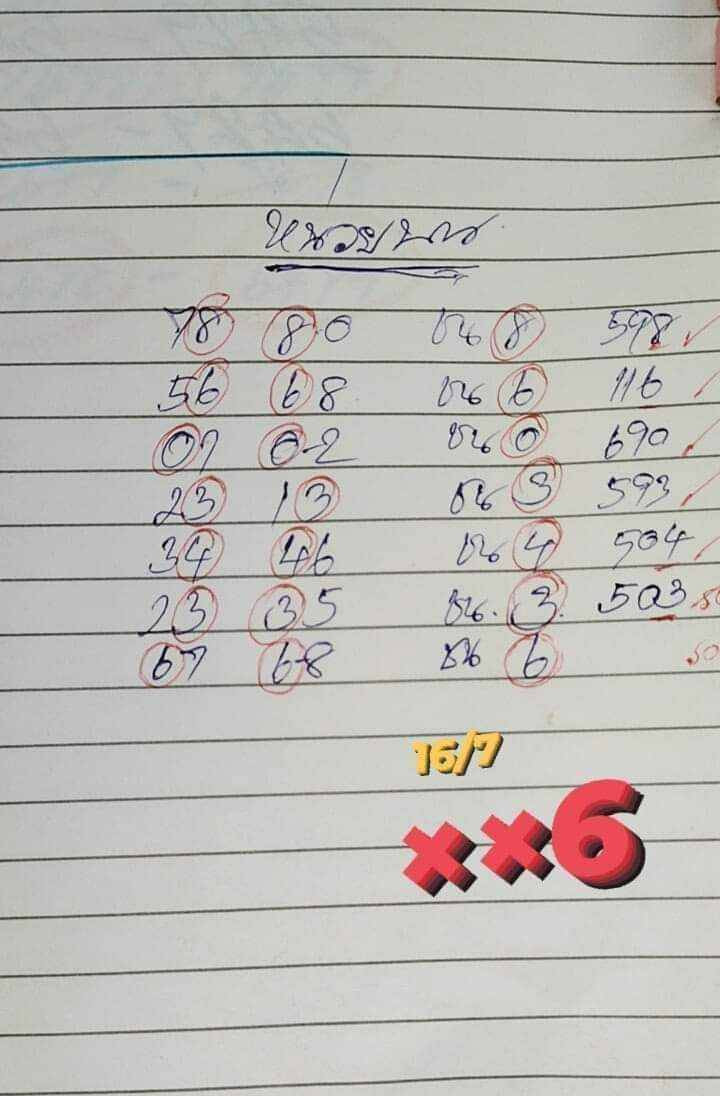 หน่วยบน
78 80 ชน 8 598
56 68 ชน 6 116
07 02 ชน 0 690
23 13 ชน 3 593
34 46 ชน 4 504
23 35 ชน. 3. 503 50
67 68 ชน 6 50
16/7
××6